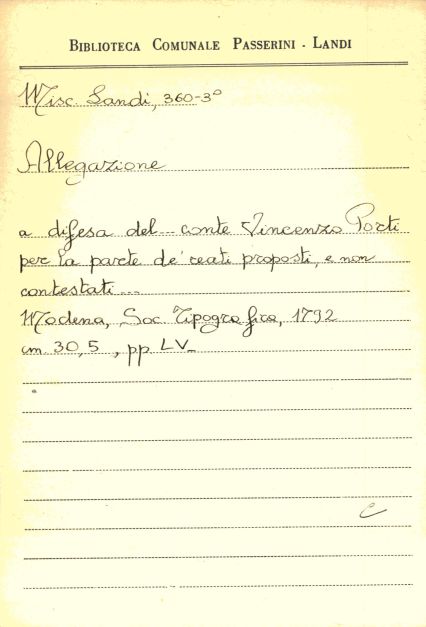 BIBLIOTECA COMUNALE PASSERINI - LANDI
Misc. Landi, 360-3°
Allegazione
a difesa del... conte Vincenzo Porti
per la parte de' reati proposti, e non
contestati....
Modena, Soc. Tipografica, 1792
cm. 30,5, pp. LV_
C